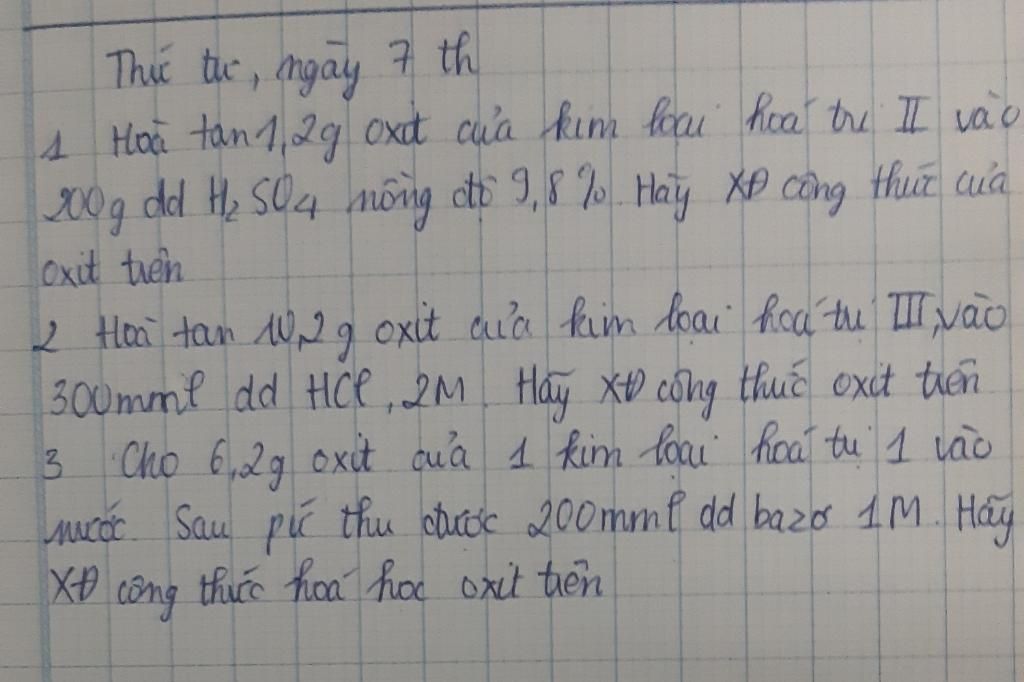 Thứ tư, ngày 7 th
1 Hoà tan 1,2g oxit của kim loại hoá trị II vào
200g dd H₂SO₄ nồng độ 9,8% Hãy XĐ công thức của
oxit trên
2 Hoà tan 10,2g oxit của kim loại hoá trị III, vào
300mml dd HCl, 2M. Hãy XĐ công thức oxit trên
3 Cho 6,2g oxit của 1 kim loại hoá trị 1 vào
nước. Sau pứ thu được 200mml dd bazơ 1M. Hãy
XĐ công thức hoá học oxit trên